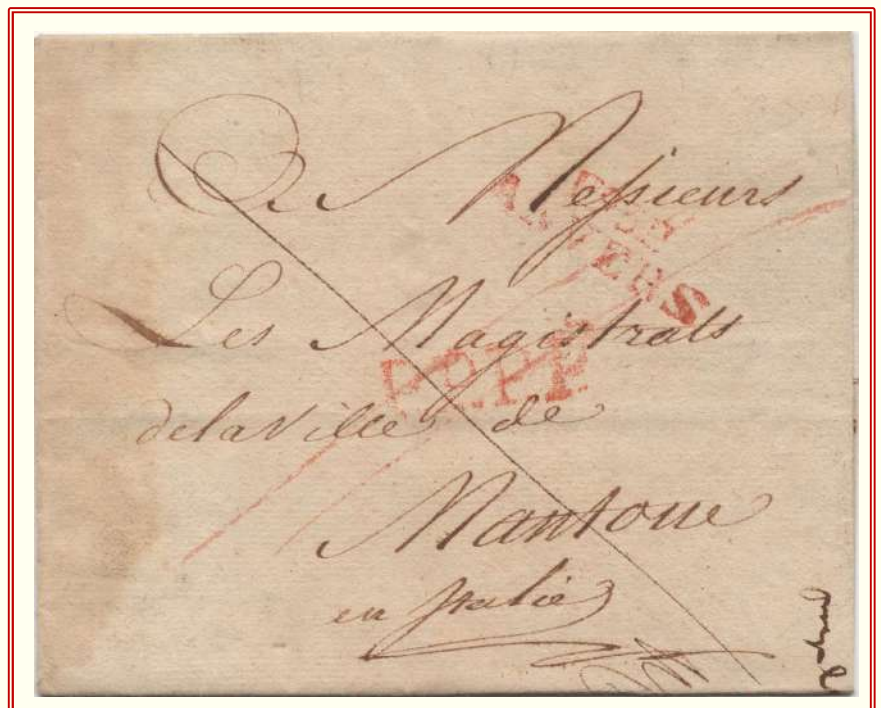 Messieurs
Les Magistrats
de la Ville de
Mantoue
en Italie
ANVERS
P.P.P.P.